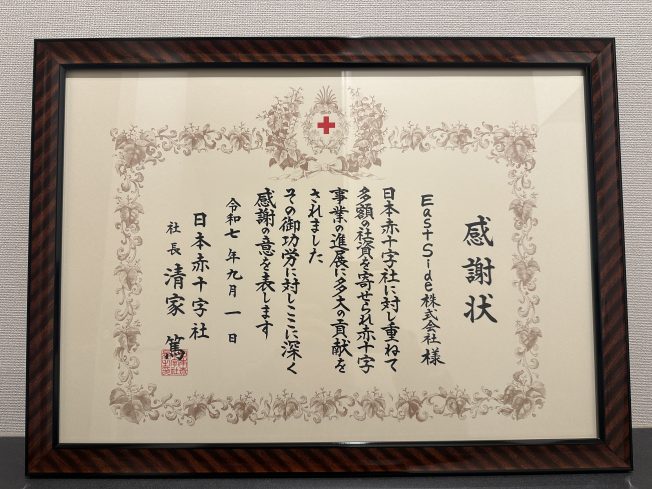 感謝状
East Side株式会社 様
日本赤十字社に対し重ねて
多額の社資を寄せられ赤十字
事業の進展に多大の貢献を
されました
その御功労に対しここに深く
感謝の意を表します
令和七年九月一日
日本赤十字社
社長 清家 篤